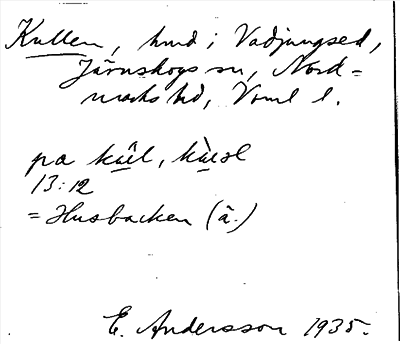 Kullen, hmd i Vadjungsed,
Järnskogs sn, Nord=
marks hd, Vrml l.
på
13:12
= Husbacken (ä.)
E. Andersson 1935.